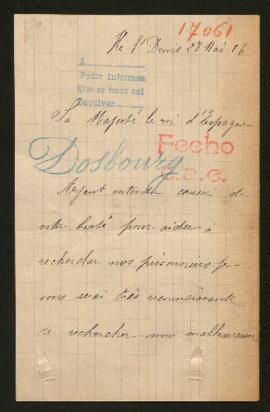 17061
Ile St Denis 28 Mai 16
A
Pedir informes
Que se haga así
Devolver
Sa Majesté le roi d'Espagne
Fecho
Dosbourg
Ayant entendu causer de
votre bonté pour aider à
rechercher nos prisonniers je
vous serai très reconnaissante
de rechercher mon malheureux